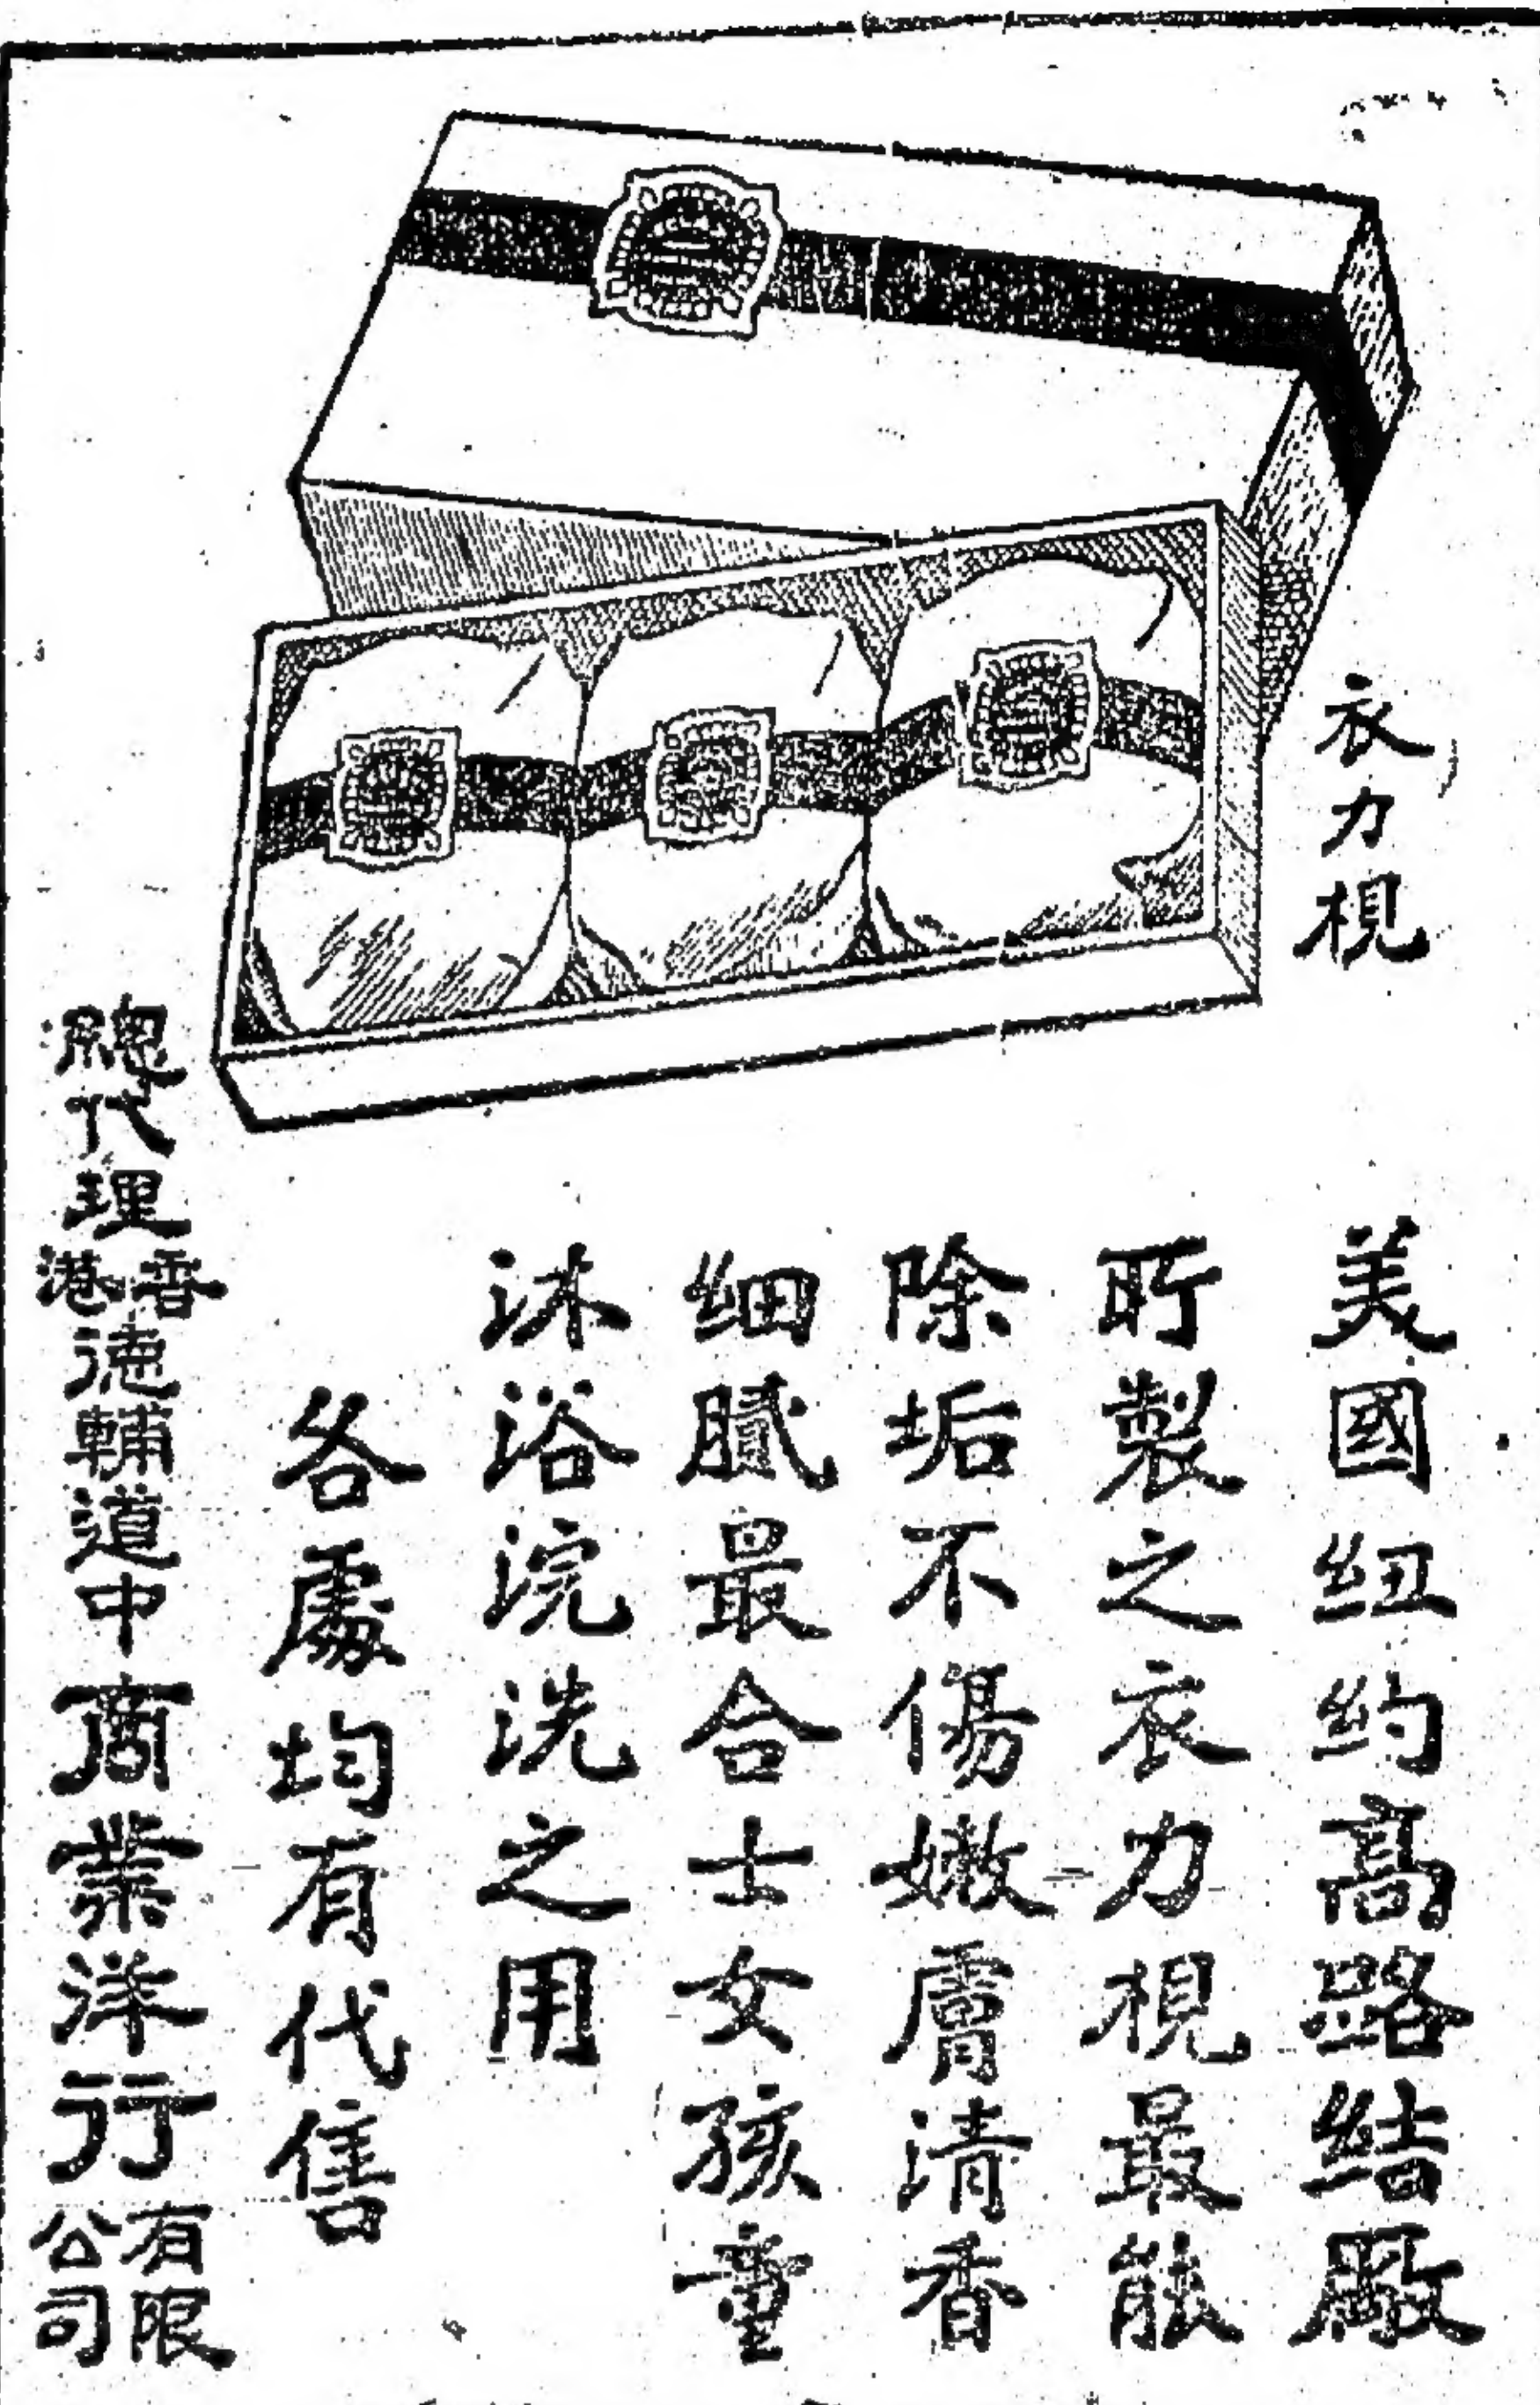 衣力梘
美國紐约高路結廠
所製之衣力梘最能
除垢不傷嫩膚清香
细膩最合士女孩童
沐浴浣洗之用
各處均有代售
總代理香港德輔道中商業洋行有限公司